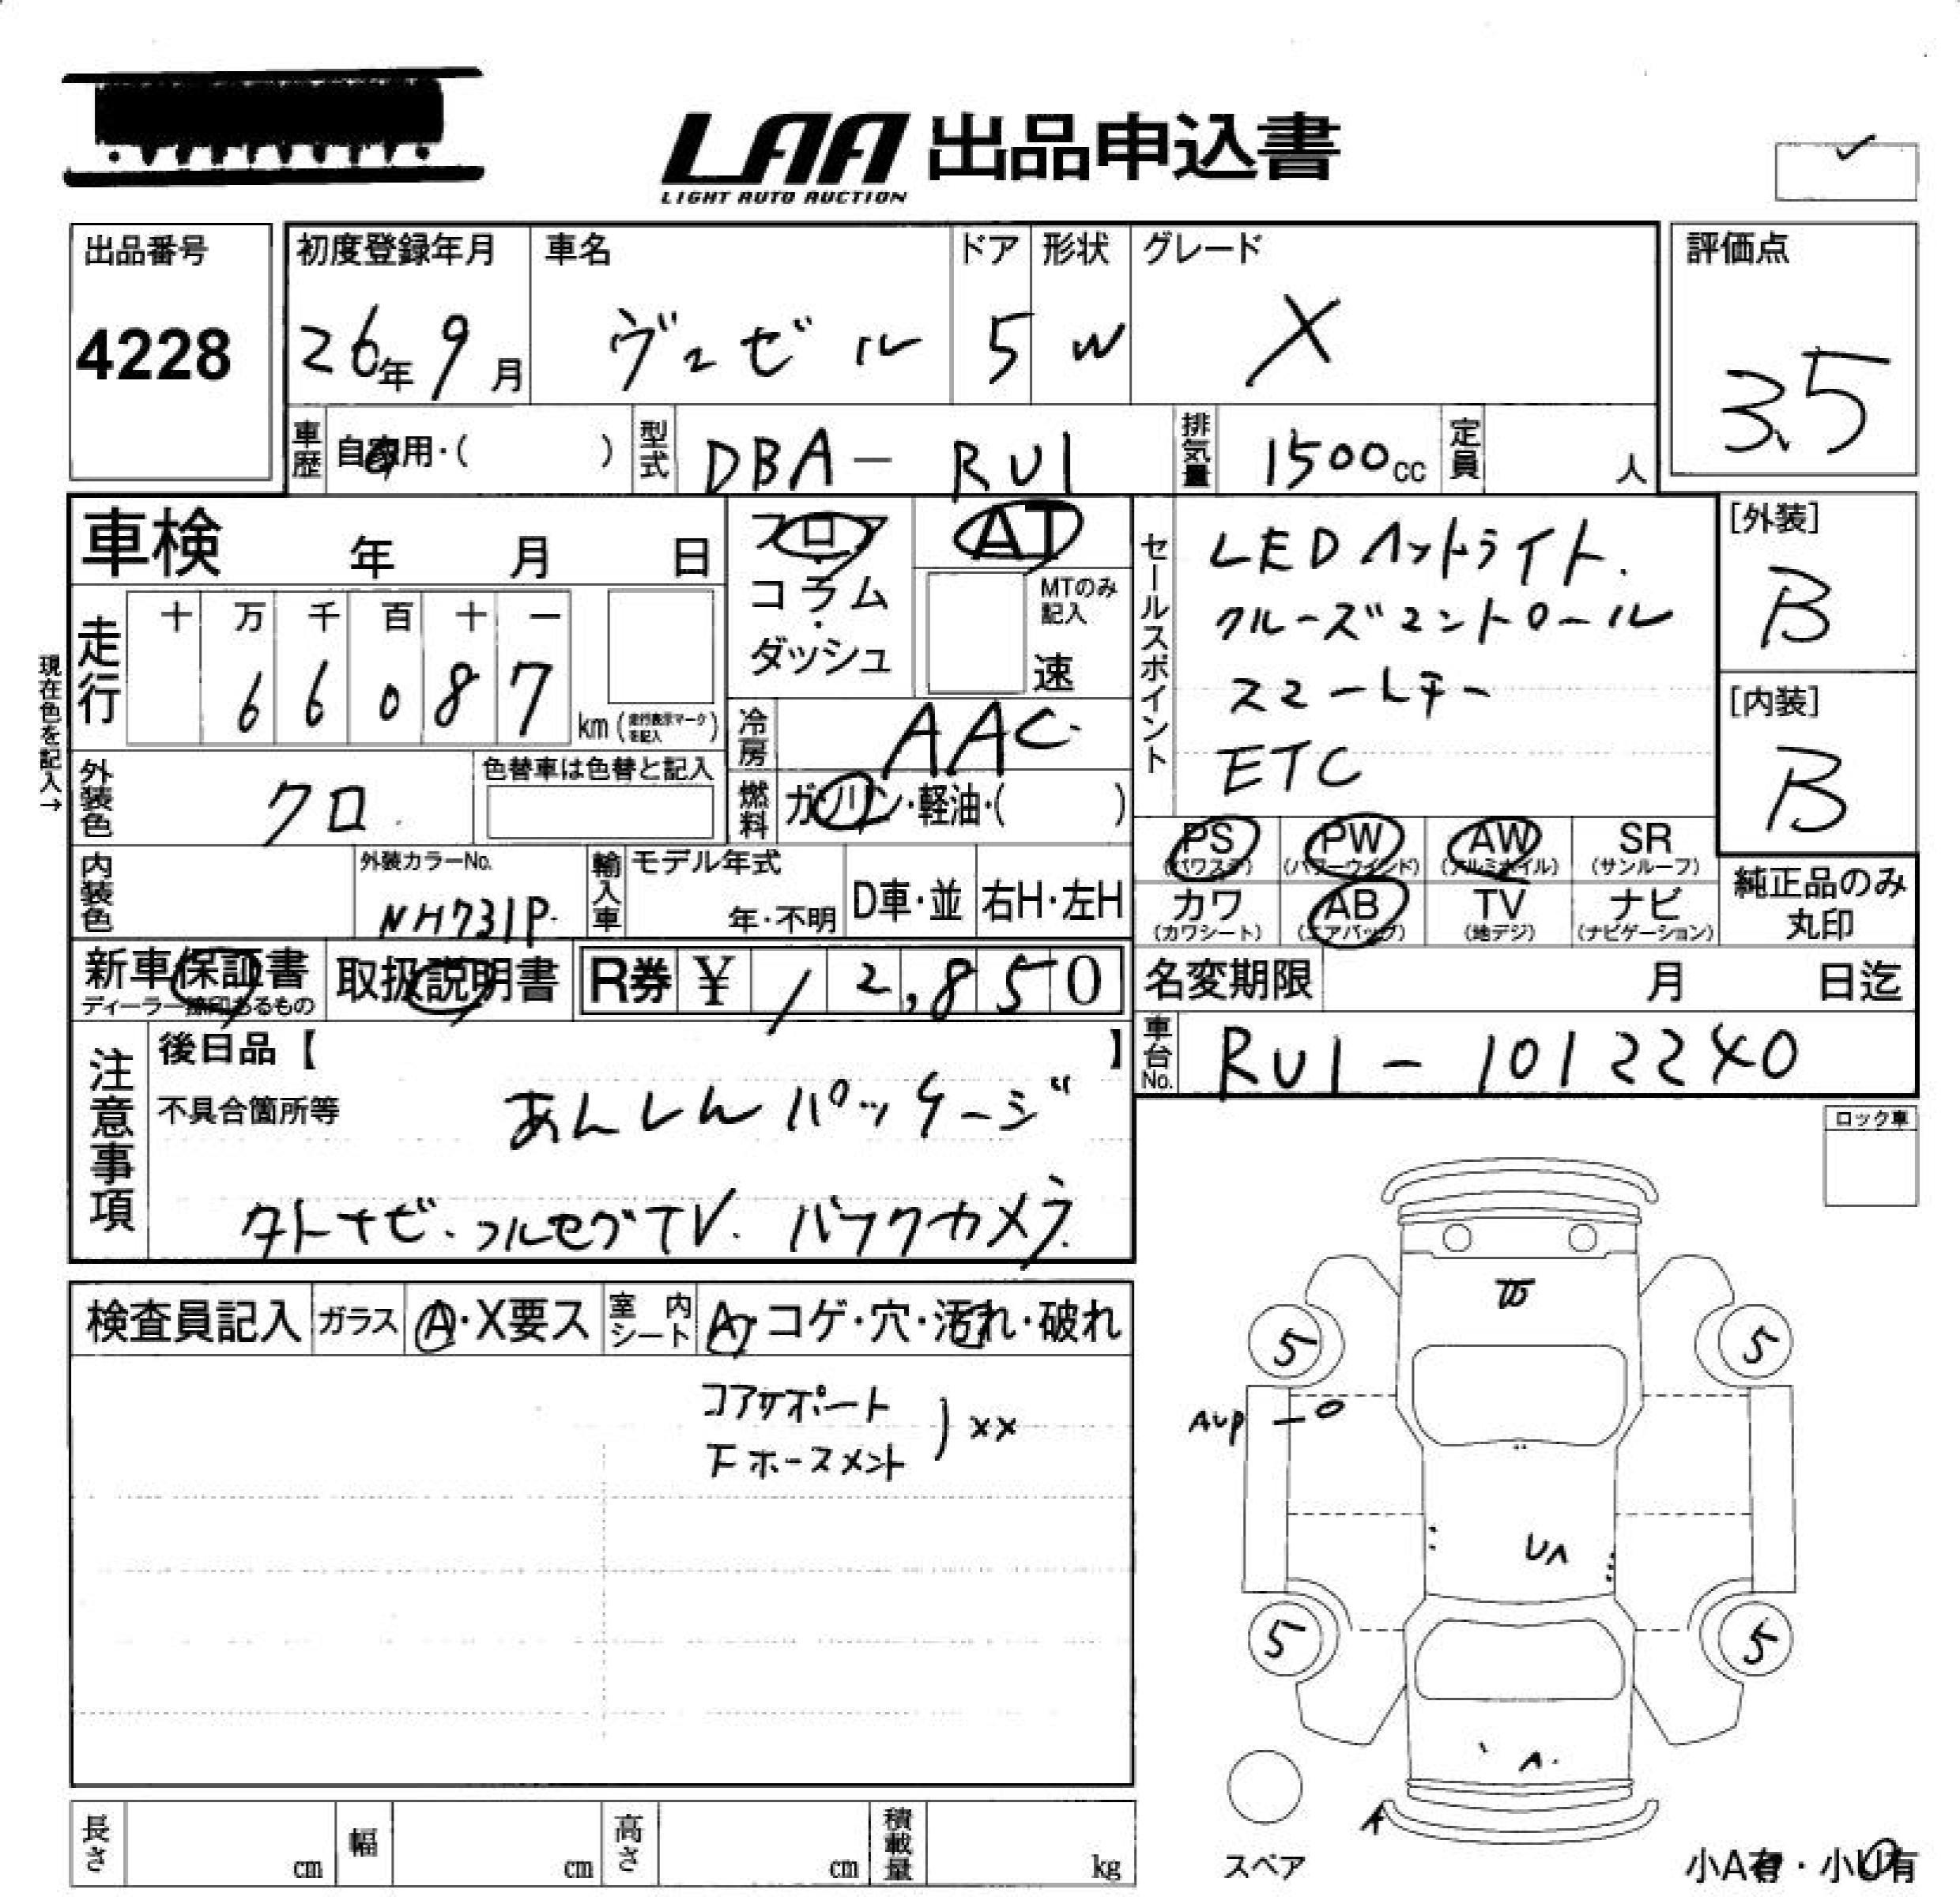 LAA 出品申込書
LIGHT AUTO AUCTION
出品番号
4228
初度登録年月
26年 9月
車名
ヴェゼル
ドア
5
形状
W
グレード
X
評価点
3.5
車歴
自家用・( )
型式
DBA- RU1
排気量
1500cc
定員
人
車検 年 月 日
フロア
・
コラム
・
ダッシュ
AT
MTのみ
記入
速
セールスポイント
LEDヘットライト.
クルーズコントロール
スマートキー
ETC
[外装]
B
[内装]
B
現在色を記入→
走行
十 万 千 百 十 一
6 6 0 8 7
km (走行表示マークを記入)
冷房
AAC
外装色
クロ.
色替車は色替と記入
燃料
ガソリン・軽油・( )
PS (パワステ)
PW (パワーウインド)
AW (アルミホイル)
SR (サンルーフ)
カワ (カワシート)
AB (エアバッグ)
TV (地デジ)
ナビ (ナビゲーション)
純正品のみ
丸印
内装色
外装カラーNo.
NH731P.
輸入車
モデル年式
年・不明
D車・並
右H・左H
新車保証書
ディーラー捺印あるもの
取扱説明書
R券 ¥ 12,850
名変期限 月 日迄
車台No.
RU1 - 1012240
注意事項
後日品【 】
不具合箇所等
あんしんパッケージ
タトナビ. フルセグTV. バックカメラ.
ロック車
検査員記入
ガラス
A・X要ス
室内シート
A・コゲ・穴・汚れ・破れ
コアサポート
下ホースメント
) XX
5
5
5
5
スペア
小A有・小U有
長さ cm
幅 cm
高さ cm
積載量 kg